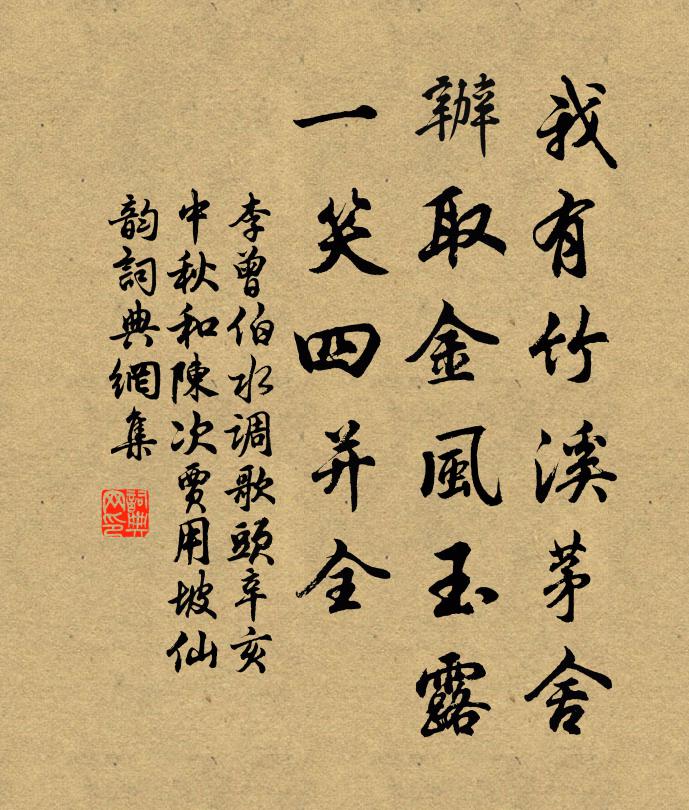 我有竹溪茅舍
辦取金風玉露
一笑四并全
李曾伯水调歌頭辛亥
中秋和陳次賈用坡仙
韵詞典網集
詞典
网印